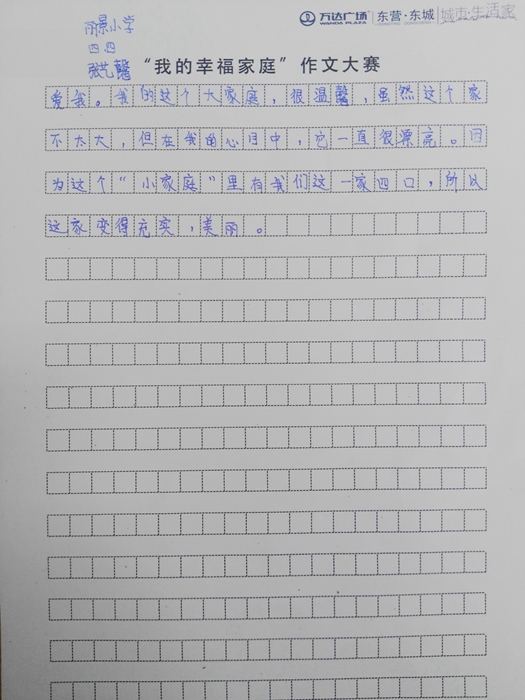 万达广场 WANDA PLAZA 东营·东城 城市·生活家
丽景小学
四.四
张艺馨
“我的幸福家庭”作文大赛
爱我。我的这个大家庭，很温馨，虽然这个家
不太大，但在我的心目中，它一直很漂亮。因
为这个“小家庭”里有我们这一家四口，所以
这家变得充实，美丽。